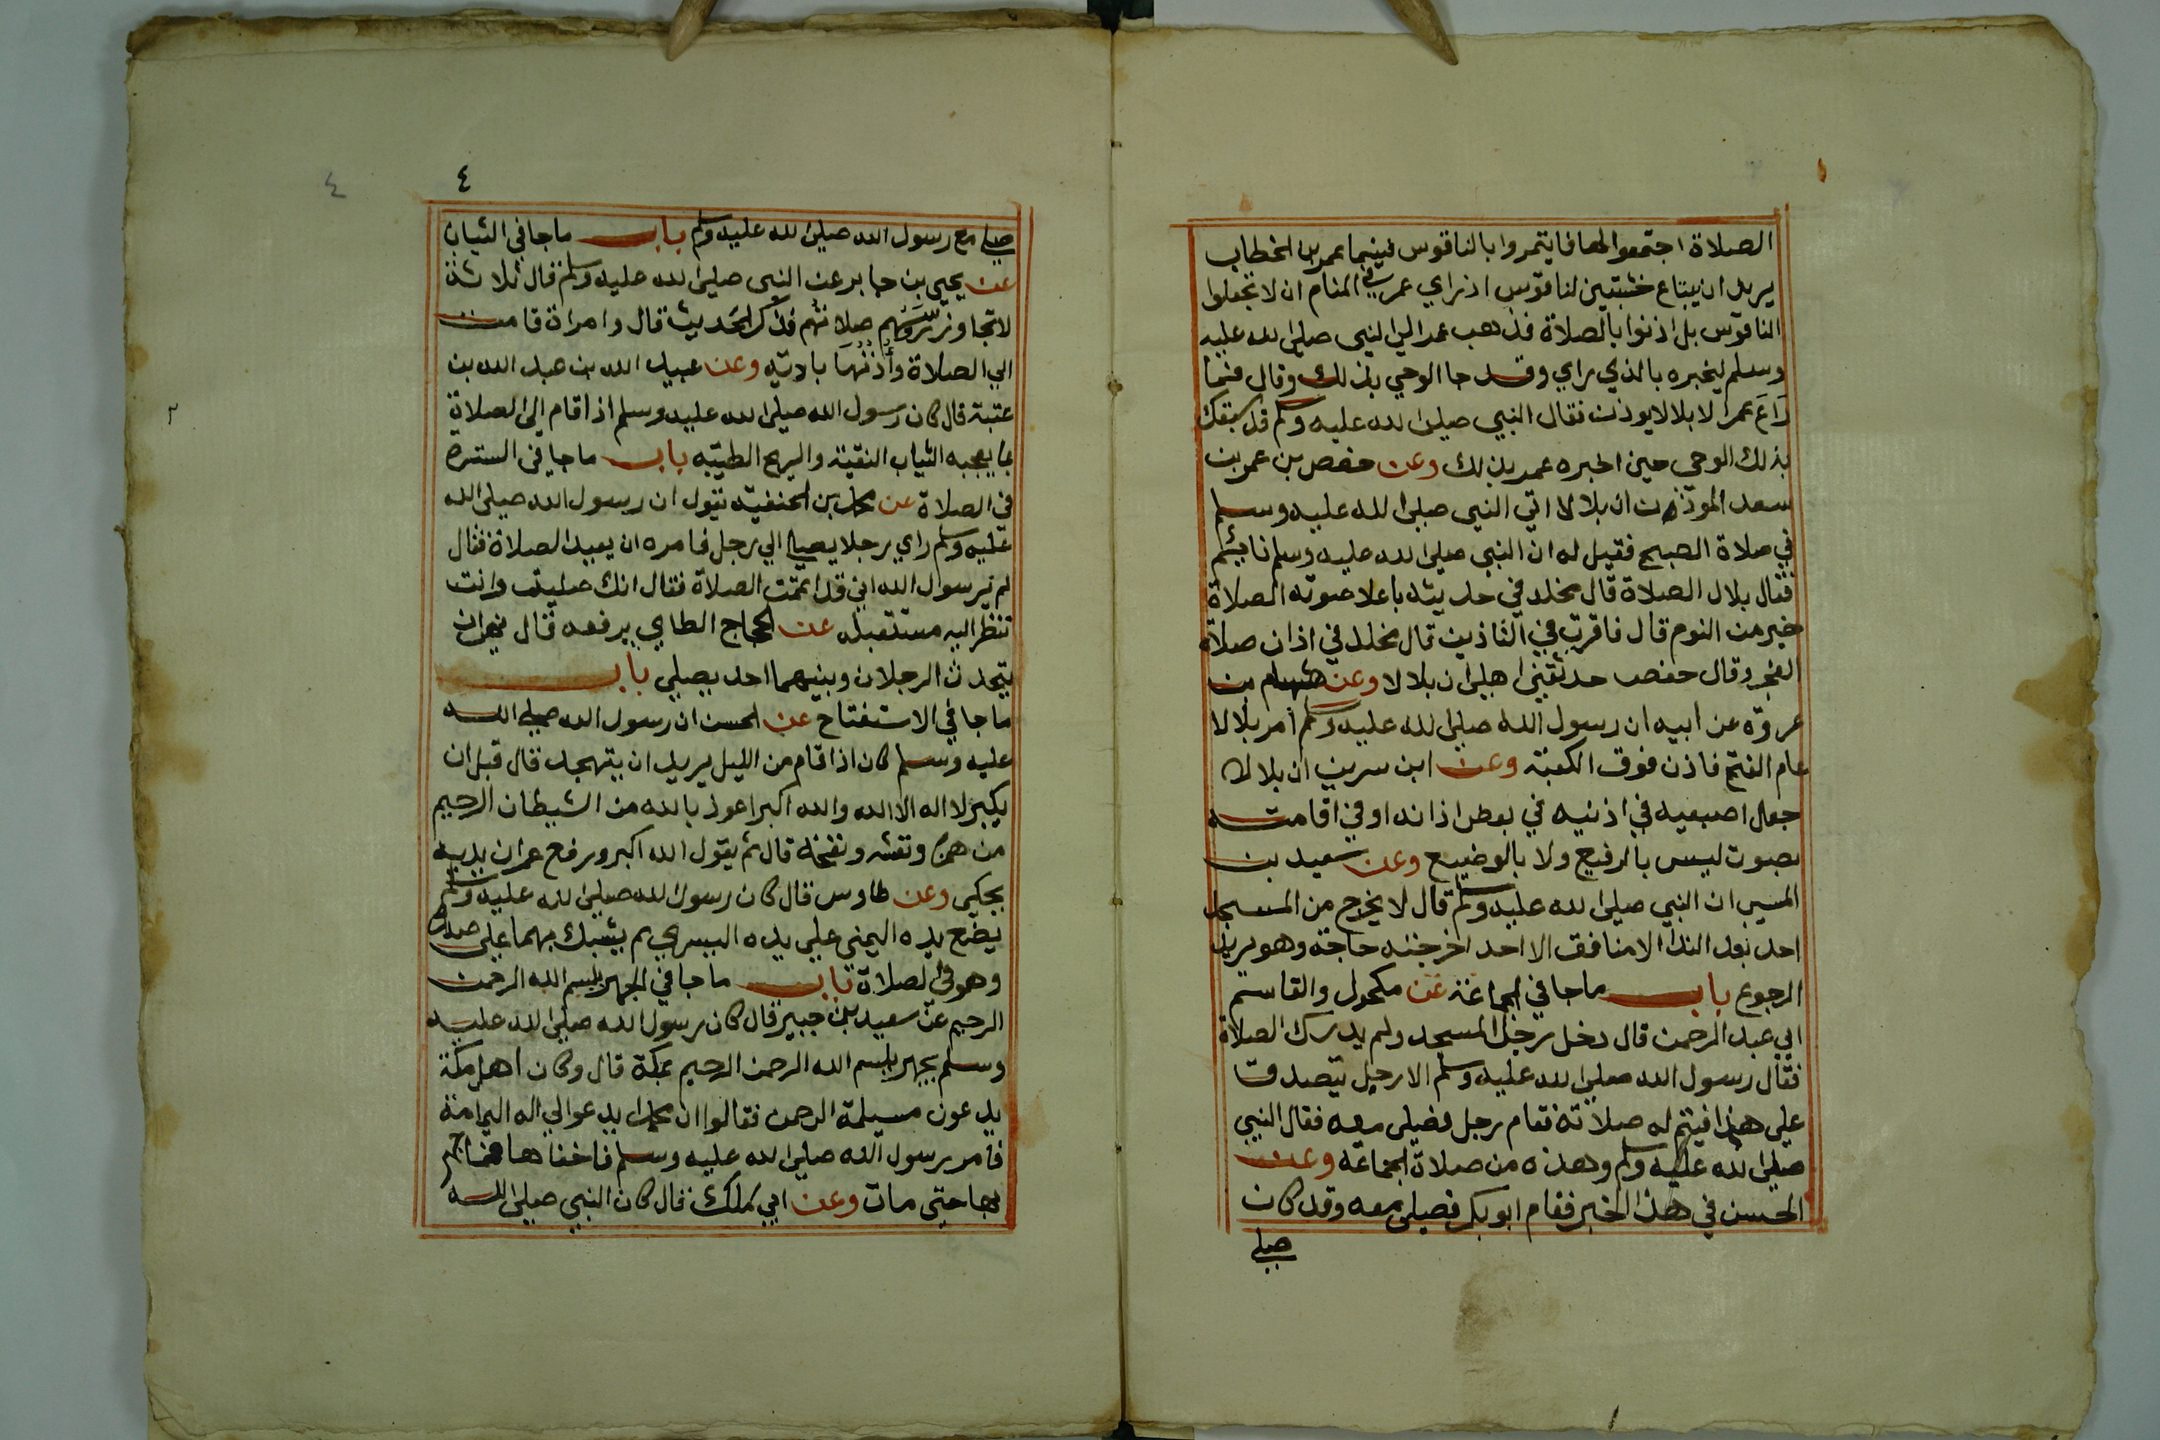 الصلاة اجتمعوا لها فايتمروا بالناقوس فبينما عمر بن الخطاب
يريد ان يبتاع خشبتين لناقوس اذ راي عمر في المنام ان لا تجعلوا
الناقوس بل اذنوا بالصلاة فذهب عمر الي النبي صلي الله عليه
وسلم ليخبره بالذي راي وقد جا الوحي بذلك وقال فما
رَاعَ عمر الا بلالا يوذن فقال النبي صلي الله عليه وسلم قد سبقك
بذلك الوحي حين اخبره عمر بذلك وعن حفص بن عمر بن
سعد الموذن ان بلالا اتي النبي صلي الله عليه وسلم
في صلاة الصبح فقيل له ان النبي صلي الله عليه وسلم نايم
فقال بلال الصلاة قال مخلد في حديثه باعلا صوته الصلاة
خير من النوم قال فاقرت في التاذين قال مخلد في اذان صلاة
الفجر وقال حفص حدثني اهلي ان بلالا وعن هشام بن
عروة عن ابيه ان رسول الله صلي الله عليه وسلم امر بلالا
عام الفتح فاذن فوق الكعبة وعن ابن سرين ان بلالا
جعل اصبعيه في اذنيه في بعض اذانه او في اقامته
بصوت ليس بالرفيع ولا بالوضيع وعن سعيد بن
المسيب ان النبي صلي الله عليه وسلم قال لا يخرج من المسجد
احد بعد الندا الا منافق الا احد اخرجته حاجة وهو يريد
الرجوع باب ما جا في الجماعة عن مكحول والقاسم
ابي عبد الرحمن قال دخل رجل المسجد ولم يدرك الصلاة
فقال رسول الله صلي الله عليه وسلم الا رجل يتصدق
علي هذا فيتم له صلاته فقام رجل فصلي معه فقال النبي
صلي الله عليه وسلم وهذه من صلاة الجماعة وعن
الحسن في هذا الخبر فقام ابو بكر فصلي معه وقد كان
صلي
٤
٤
صلي مع رسول الله صلي الله عليه وسلم باب ما جا في الثياب
عن يحيي بن جابر عن النبي صلي الله عليه وسلم قال ثلاثة
لا تجاوز رؤسهم صلاتهم فذكر الحديث قال وامراة قامت
الي الصلاة وأُذنُهَا بادية وعن عبيد الله بن عبد الله بن
عتبة قال كان رسول الله صلي الله عليه وسلم اذا قام الي الصلاة
مما يعجبه الثياب النقية والريح الطيبه باب ما جا في السترة
في الصلاة عن محمد بن الحنفيه يقول ان رسول الله صلي الله
عليه وسلم راي رجلا يصلي الي رجل فامره ان يعيد الصلاة فقال
لم يرسول الله اني قد اتممت الصلاة فقال انك صليت وانت
تنظر اليه مستقبله عن الحجاج الطاي يرفعه قال نهي ان
يتحدث الرجلان وبينهما احد يصلي باب
ما جا في الاستفتاح عن الحسن ان رسول الله صلي الله
عليه وسلم كان اذا قام من الليل يريد ان يتهجد قال قبل ان
يكبر لا اله الا الله والله اكبر اعوذ بالله من الشيطان الرحيم
من همزه ونفثه ونفخه قال ثم يقول الله اكبر ورفع عمران يديه
يحكي وعن طاوس قال كان رسول الله صلي الله عليه وسلم
يضع يده اليمني علي يده اليسري ثم يشبك بهما علي صدره
وهو في الصلاة باب ما جا في الجهر ببسم الله الرحمن
الرحيم عن سعيد بن جبير قال كان رسول الله صلي الله عليه
وسلم يجهر ببسم الله الرحمن الرحيم بمكة قال وكان اهل مكة
يدعون مسيلمة الرحمن فقالوا ان محمدا يدعوا لي اله اليمامة
فامر رسول الله صلي الله عليه وسلم فاخفاها فما جهر
بها حتي مات وعن ابي ملك قال كان النبي صلي الله